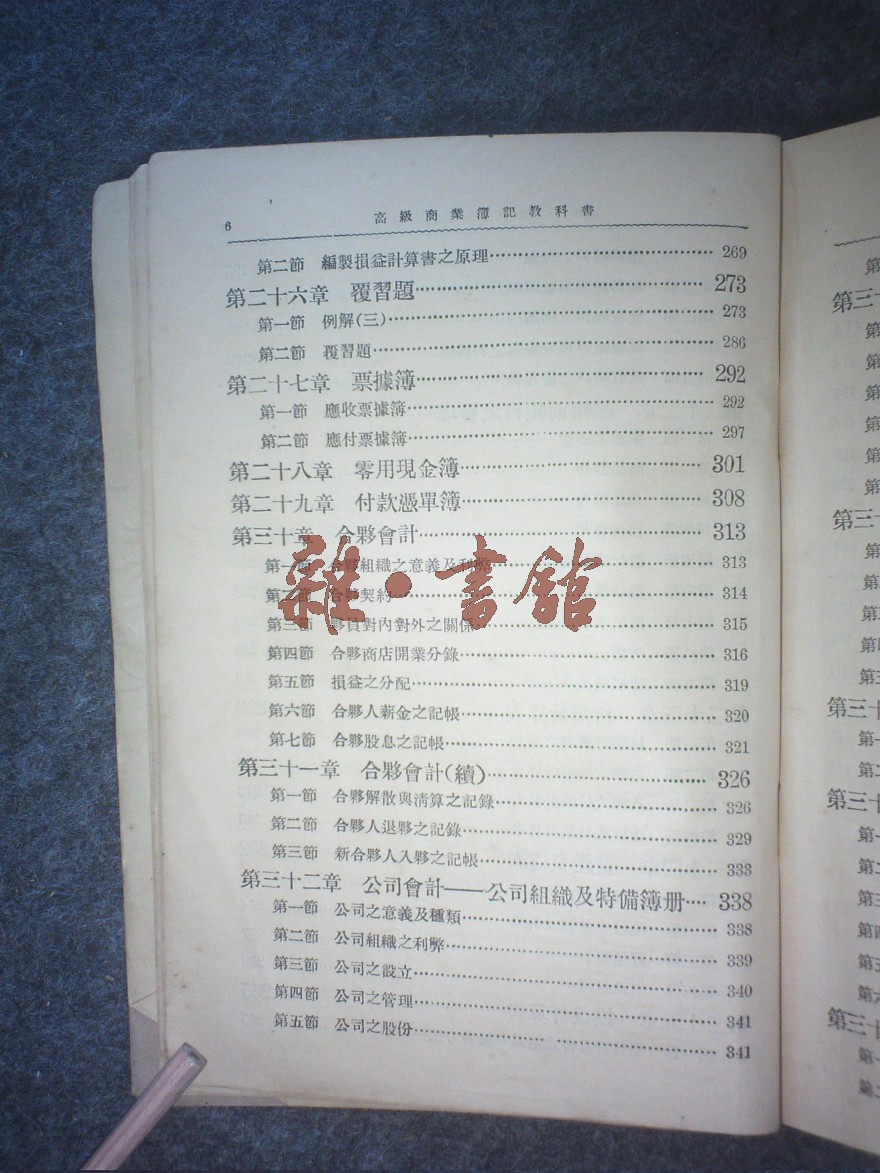 6
高級商業簿記教科書
第二節 編製損益計算書之原理 269
第二十六章 覆習題 273
第一節 例解(三) 273
第二節 覆習題 286
第二十七章 票據簿 292
第一節 應收票據簿 292
第二節 應付票據簿 297
第二十八章 零用現金簿 301
第二十九章 付款憑單簿 308
第三十章 合夥會計 313
第一節 合夥組織之意義及利弊 313
第二節 合夥契約 314
第三節 夥員對內對外之關係 315
第四節 合夥商店開業分錄 316
第五節 損益之分配 319
第六節 合夥人薪金之記帳 320
第七節 合夥股息之記帳 321
第三十一章 合夥會計(續) 326
第一節 合夥解散與清算之記錄 326
第二節 合夥人退夥之記錄 329
第三節 新合夥人入夥之記帳 333
第三十二章 公司會計——公司組織及特備簿册 338
第一節 公司之意義及種類 338
第二節 公司組織之利弊 339
第三節 公司之設立 340
第四節 公司之管理 341
第五節 公司之股份 341
雜·書館